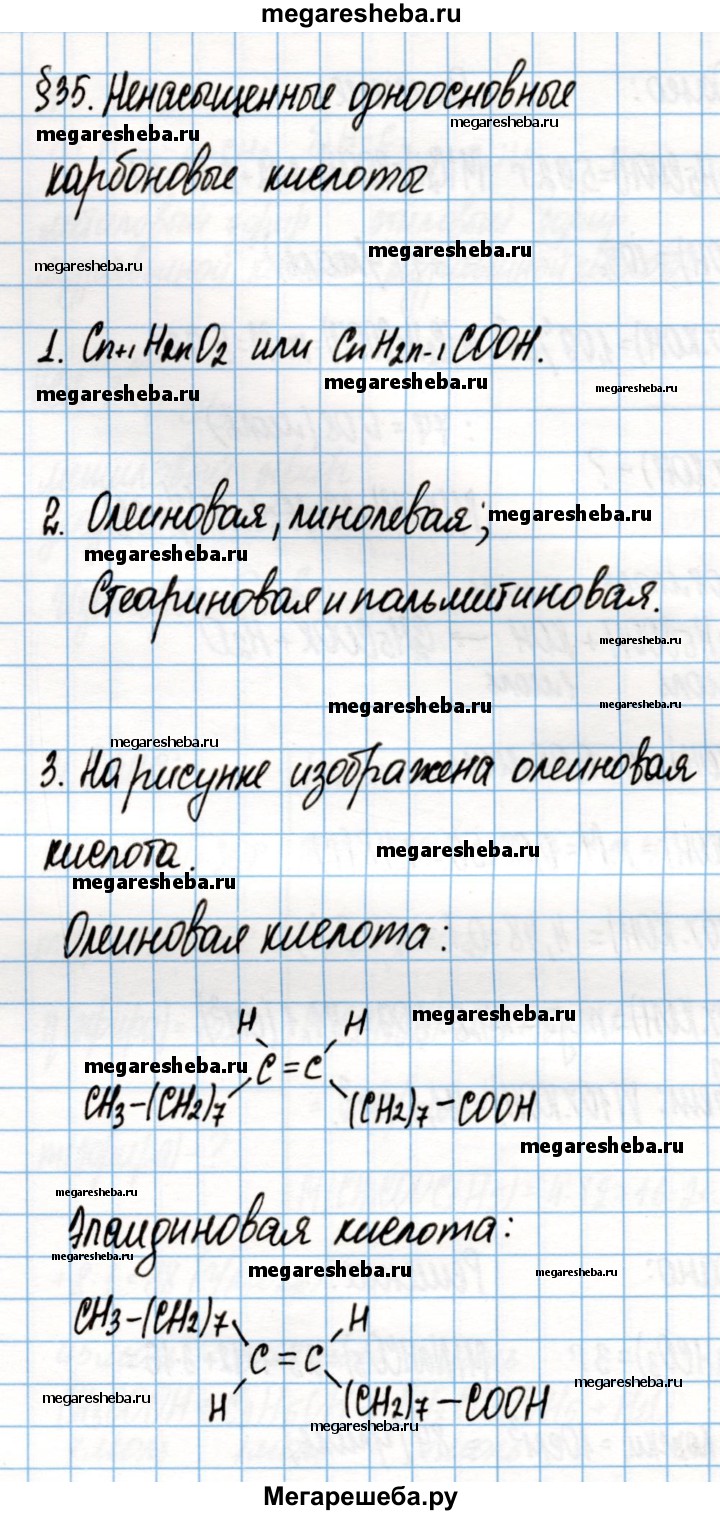 megaresheba.ru
§35. Ненасыщенные одноосновные
megaresheba.ru
megaresheba.ru
карбоновые кислоты
megaresheba.ru
megaresheba.ru
1. Cn+1H2nO2 или CnH2n-1COOH.
megaresheba.ru
megaresheba.ru
megaresheba.ru
2. Олеиновая, линолевая;
megaresheba.ru
megaresheba.ru
Стеариновая и пальмитиновая.
megaresheba.ru
megaresheba.ru
megaresheba.ru
megaresheba.ru
3. На рисунке изображена олеиновая
кислота.
megaresheba.ru
megaresheba.ru
Олеиновая кислота:
megaresheba.ru
H H
megaresheba.ru
C=C
CH3-(CH2)7 (CH2)7-COOH
megaresheba.ru
megaresheba.ru
Элаидиновая кислота:
megaresheba.ru
megaresheba.ru
megaresheba.ru
CH3-(CH2)7 H
C=C
megaresheba.ru
megaresheba.ru
H (CH2)7-COOH
megaresheba.ru
Мегарешеба.ру